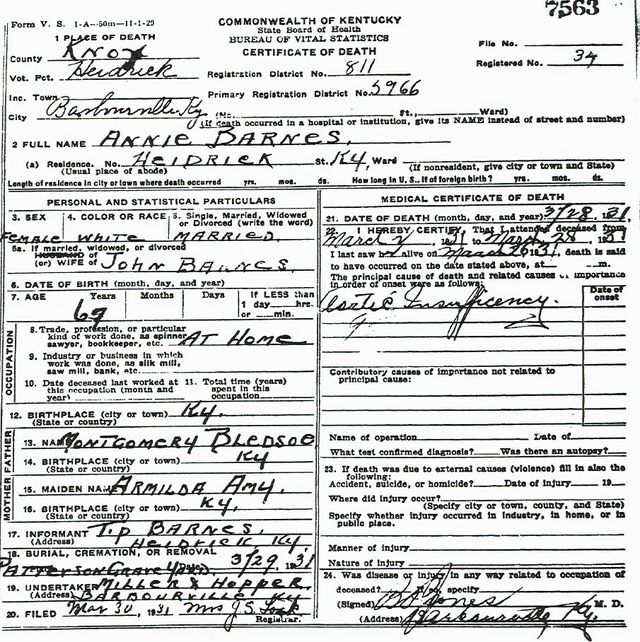 7563
Form V. S. 1-A-50m-11-1-29
COMMONWEALTH OF KENTUCKY
State Board of Health
BUREAU OF VITAL STATISTICS
CERTIFICATE OF DEATH
1 PLACE OF DEATH
County Knox
Vot. Pct. Heidrick
Inc. Town
City Barbourville Ky
File No.
Registered No. 34
Registration District No. 811
Primary Registration District No. 5966
(No. St., Ward)
(If death occurred in a hospital or institution, give its NAME instead of street and number)
2 FULL NAME ANNIE BARNES.
(a) Residence. No. HEIDRICK St. Ky, Ward
(Usual place of abode) (If nonresident, give city or town and State)
Length of residence in city or town where death occurred yrs. mos. ds. How long in U. S., if of foreign birth? yrs. mos. ds.
PERSONAL AND STATISTICAL PARTICULARS
3. SEX 4. COLOR OR RACE 5. Single, Married, Widowed or Divorced (write the word)
Female White MARRIED
5a. If married, widowed, or divorced
HUSBAND of
(or) WIFE of JOHN BARNES.
6. DATE OF BIRTH (month, day, and year)
7. AGE Years Months Days If LESS than 1 day hrs. or min.
69
OCCUPATION
8. Trade, profession, or particular
kind of work done, as spinner,
sawyer, bookkeeper, etc. AT HOME
9. Industry or business in which
work was done, as silk mill,
saw mill, bank, etc.
10. Date deceased last worked at this occupation (month and year)
11. Total time (years) spent in this occupation
12. BIRTHPLACE (city or town) Ky.
(State or country)
FATHER
13. NAME MONTGOMERY BLEDSOE
14. BIRTHPLACE (city or town) Ky
(State or country)
MOTHER
15. MAIDEN NAME ARMILDA AMY.
16. BIRTHPLACE (city or town) Ky.
(State or country)
17. INFORMANT TIP BARNES,
(Address) HEIDRICK Ky.
18. BURIAL, CREMATION, OR REMOVAL
PATTERSON GRAVE YARD 3/29 1931
19. UNDERTAKER MILLER & HOPPER,
(Address) BARBOURVILLE Ky
20. FILED Mar 30 1931 Mrs J.S.
Registrar.
MEDICAL CERTIFICATE OF DEATH
21. DATE OF DEATH (month, day, and year) 3/28 31.
22. I HEREBY CERTIFY, That I attended deceased from
March 2 1931 to March 28 1931
I last saw alive on March 1931, death is said
to have occurred on the date stated above, at m.
The principal cause of death and related causes of importance
in order of onset were as follows:
Date of onset
Aortic Insufficency.
Contributory causes of importance not related to
principal cause:
Name of operation Date of
What test confirmed diagnosis? Was there an autopsy?
23. If death was due to external causes (violence) fill in also the
following:
Accident, suicide, or homicide? Date of injury 19
Where did injury occur?
(Specify city or town, county, and State)
Specify whether injury occurred in industry, in home, or in
public place.
Manner of injury
Nature of injury
24. Was disease or injury in any way related to occupation of
deceased? If so, specify
(Signed) Jones M. D.
(Address) Barbourville Ky.